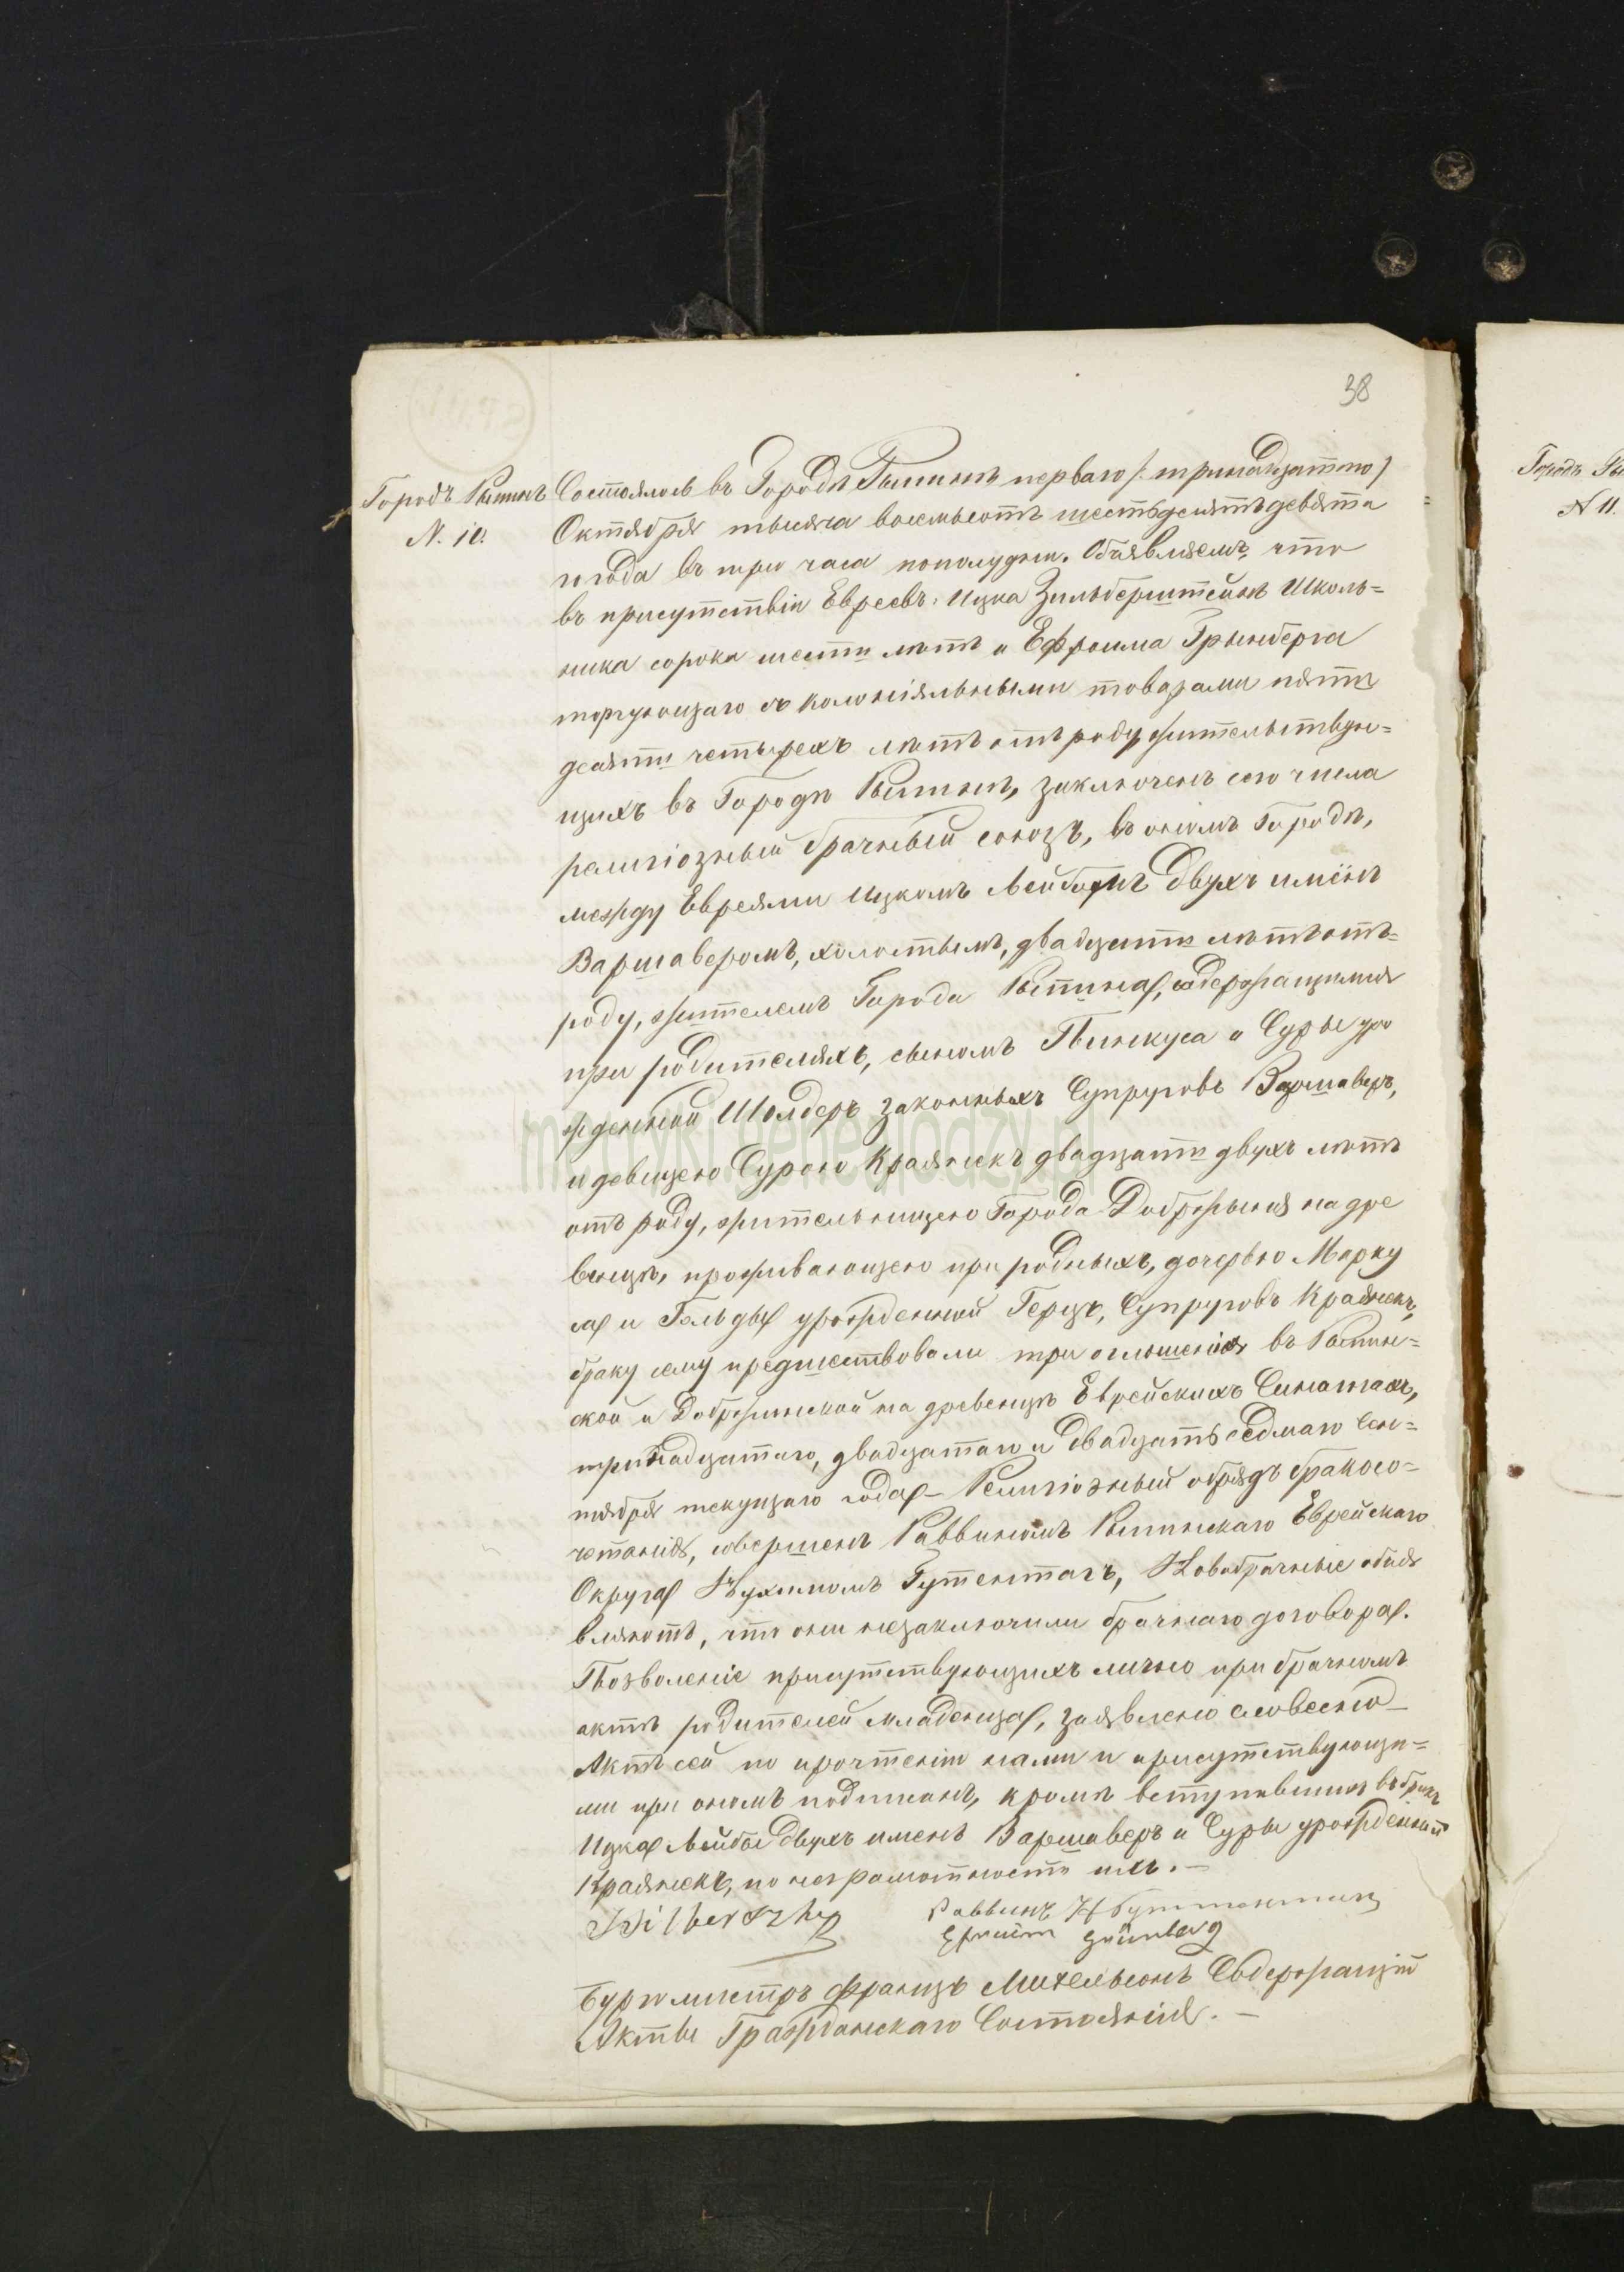 38
Городъ Рыпинъ
N. 10.
Состоялось въ Городѣ Рыпинѣ перваго /: тринадцатаго /
Октября тысяча восемьсотъ шестьдесятъ девята
го года въ три часа пополудни. Объявляемъ что
въ присутствіи Евреевъ: Ицка Зильберштейнъ Школь=
ника сорока шести лѣтъ и Ефроима Грынберга
торгующаго съ колоніяльными товарами пяти
десяти четырехъ лѣтъ отъ роду жительствую=
щихъ въ Городѣ Рыпинѣ, заключенъ сего числа
религіозный брачный союзъ, въ ономъ Городѣ,
между Евреями Ицкомъ Лейбою двухъ имёнъ
Варшаверомъ, холостымъ, двадцати лѣтъ отъ=
роду, жителемъ Города Рыпина, содержащимся
при родителяхъ, сыномъ Пинкуса и Суры уро
жденной Шолдеръ законныхъ Супруговъ Варшаверъ,
и девицею Сурою Краянекъ двадцати двухъ лѣтъ
отъ роду, жительницею Города Добржыня на дре
венцѣ, проживающею при родныхъ, дочерью Марку
са и Гольды урожденной Герцъ, Супруговъ Краянекъ,
браку сему предшествовали три оглашенія въ Рыпин=
ской и Добржинской на древенцѣ Еврейскихъ Синагогахъ,
тринадцатаго, двадцатаго и двадцать седмаго Сен=
тября текущаго года – Религіозный обрядъ бракосо=
четанія, совершенъ Раввиномъ Рыпинскаго Еврейскаго
Округа Нухимомъ Гутентагъ, Новобрачные объя
вляютъ, что они незаключили брачнаго договора.
Позволеніе присутствующихъ лично при брачномъ
актѣ родителей младенца, заявлено словесно –
Актъ сей по прочтеніи нами и присутствующи=
ми при ономъ подписанъ, кромѣ вступившихъ въ бракъ
Ицка Лейбы двухъ именъ Варшаверъ и Суры урожденной
Краянекъ, по неграмотности ихъ. –
Раввинъ Н Гуттентагъ
Efraim Grünberg
Бургомистръ Францъ Михельсонъ Содержащій
Акты Гражданскаго Состоянія. –
Городъ Ры
N 11.
metryki.genealodzy.pl